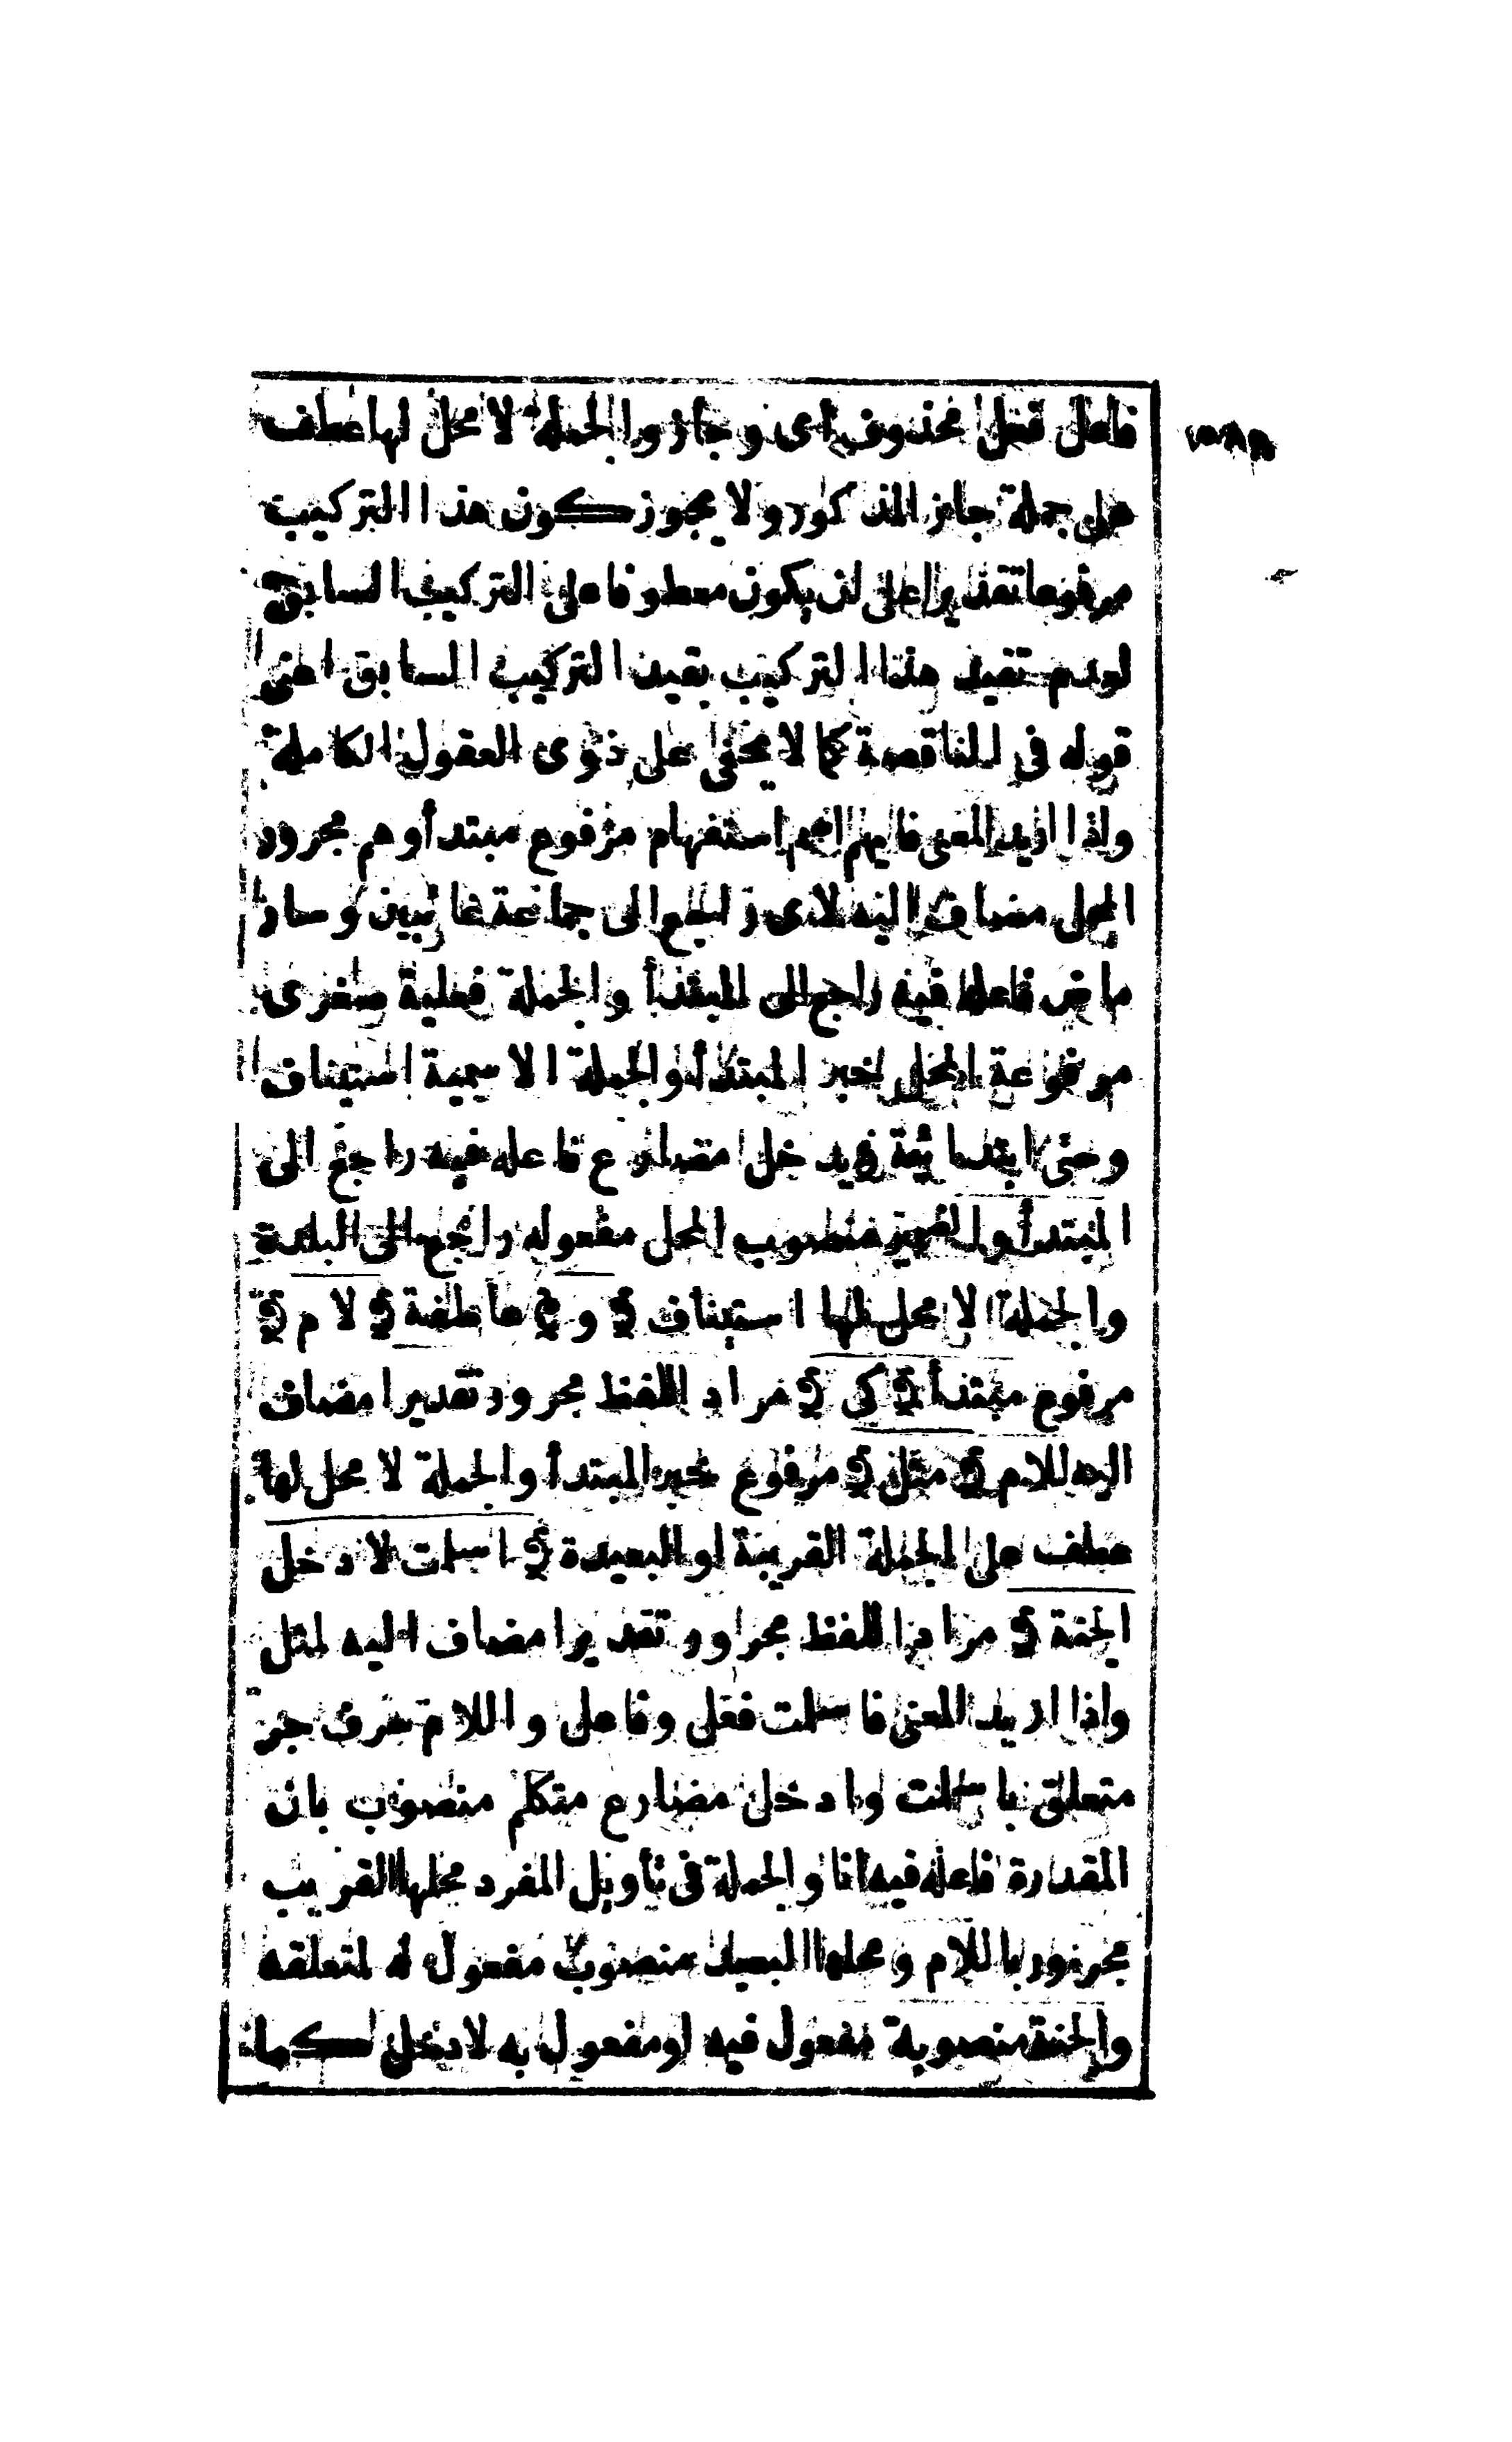 فاعل فعل محذوف اى وجاز والجملة لا محل لها عطف
على جملة جاز المذكور ولا يجوز كون هذا التركيب
مرفوعا تقديرا على ان يكون معطوفا على التركيب السابق
لعدم تقييد هذا التركيب بقيد التركيب السابق اعنى
قوله فى الناقصة كما لا يخفى على ذوى العقول الكاملة
واذا اريد المعنى فايهم اسم استفهام مرفوع مبتدأ وهم مجرور
المحل مضاف اليه لاى راجع الى جماعة غائبين وسار
ماض فاعله فيه راجع الى المبتدأ والجملة فعلية صغرى
مرفوعة المحل خبر المبتدأ والجملة الاسمية استيناف
وحتى ابتدائية ويدخل مضارع فاعله فيه راجع الى
المبتدأ والضمير منصوب المحل مفعوله راجع الى البلدة
والجملة لا محل لها استيناف ﴿ و ﴾ عاطفة ﴿ لام ﴾
مرفوع مبتدأ ﴿ كى ﴾ مراد اللفظ مجرور تقديرا مضاف
اليه للام ﴿ مثل ﴾ مرفوع خبر المبتدأ والجملة لا محل لها
عطف على الجملة القريبة او البعيدة ﴿ اسلمت لادخل
الجنة ﴾ مراد اللفظ مجرور تقديرا مضاف اليه لمثل
واذا اريد المعنى فاسلمت فعل وفاعل واللام حرف جر
متعلق باسلمت وادخل مضارع متكلم منصوب بان
المقدرة فاعله فيه انا والجملة فى تأويل المفرد محلها القريب
مجرور باللام ومحلها البعيد منصوب مفعول له لمتعلقه
والجنة منصوبة مفعول فيه او مفعول به لادخل كما